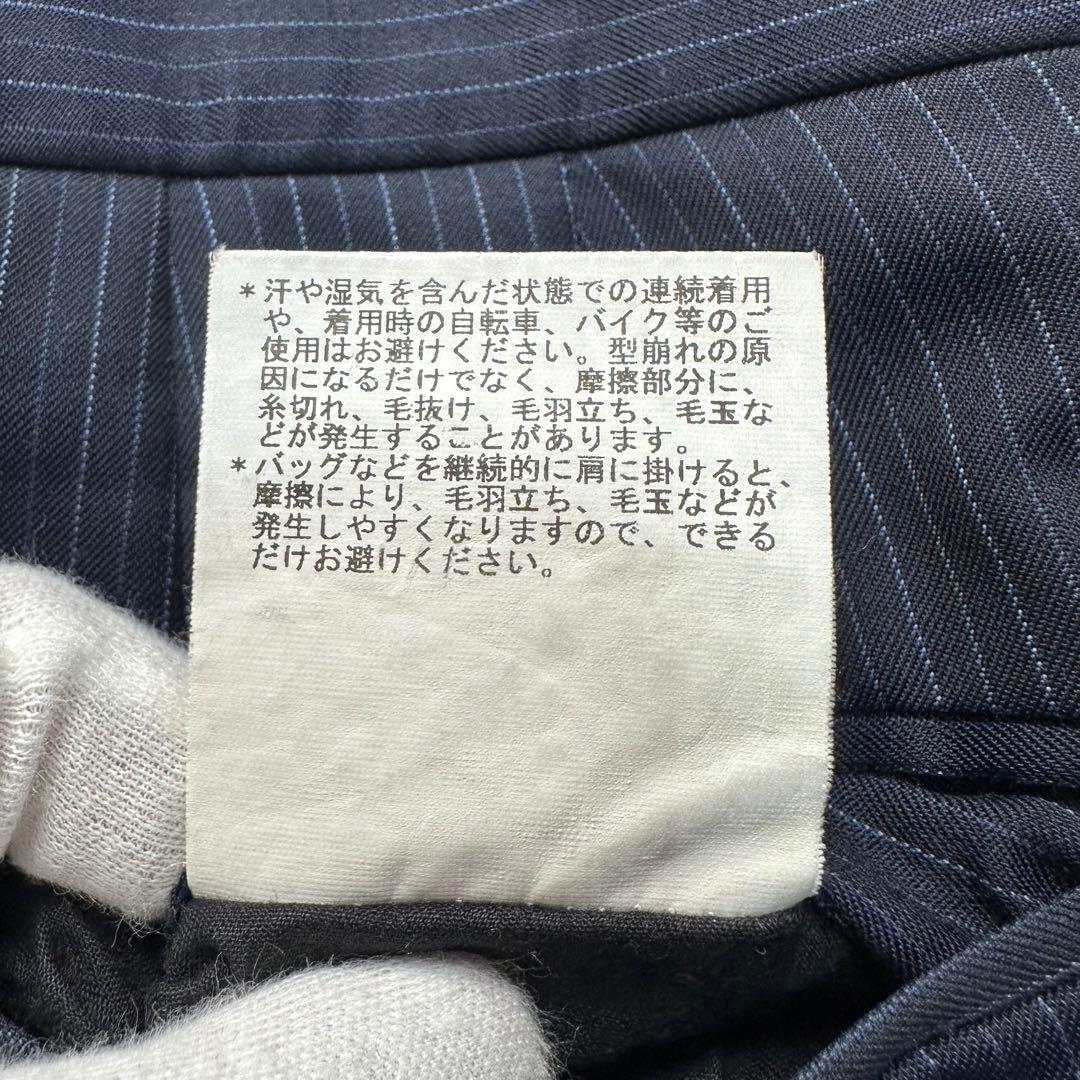 *汗や湿気を含んだ状態での連続着用
や、着用時の自転車、バイク等のご
使用はお避けください。型崩れの原
因になるだけでなく、摩擦部分に、
糸切れ、毛抜け、毛羽立ち、毛玉な
どが発生することがあります。
*バッグなどを継続的に肩に掛けると、
摩擦により、毛羽立ち、毛玉などが
発生しやすくなりますので、できる
だけお避けください。